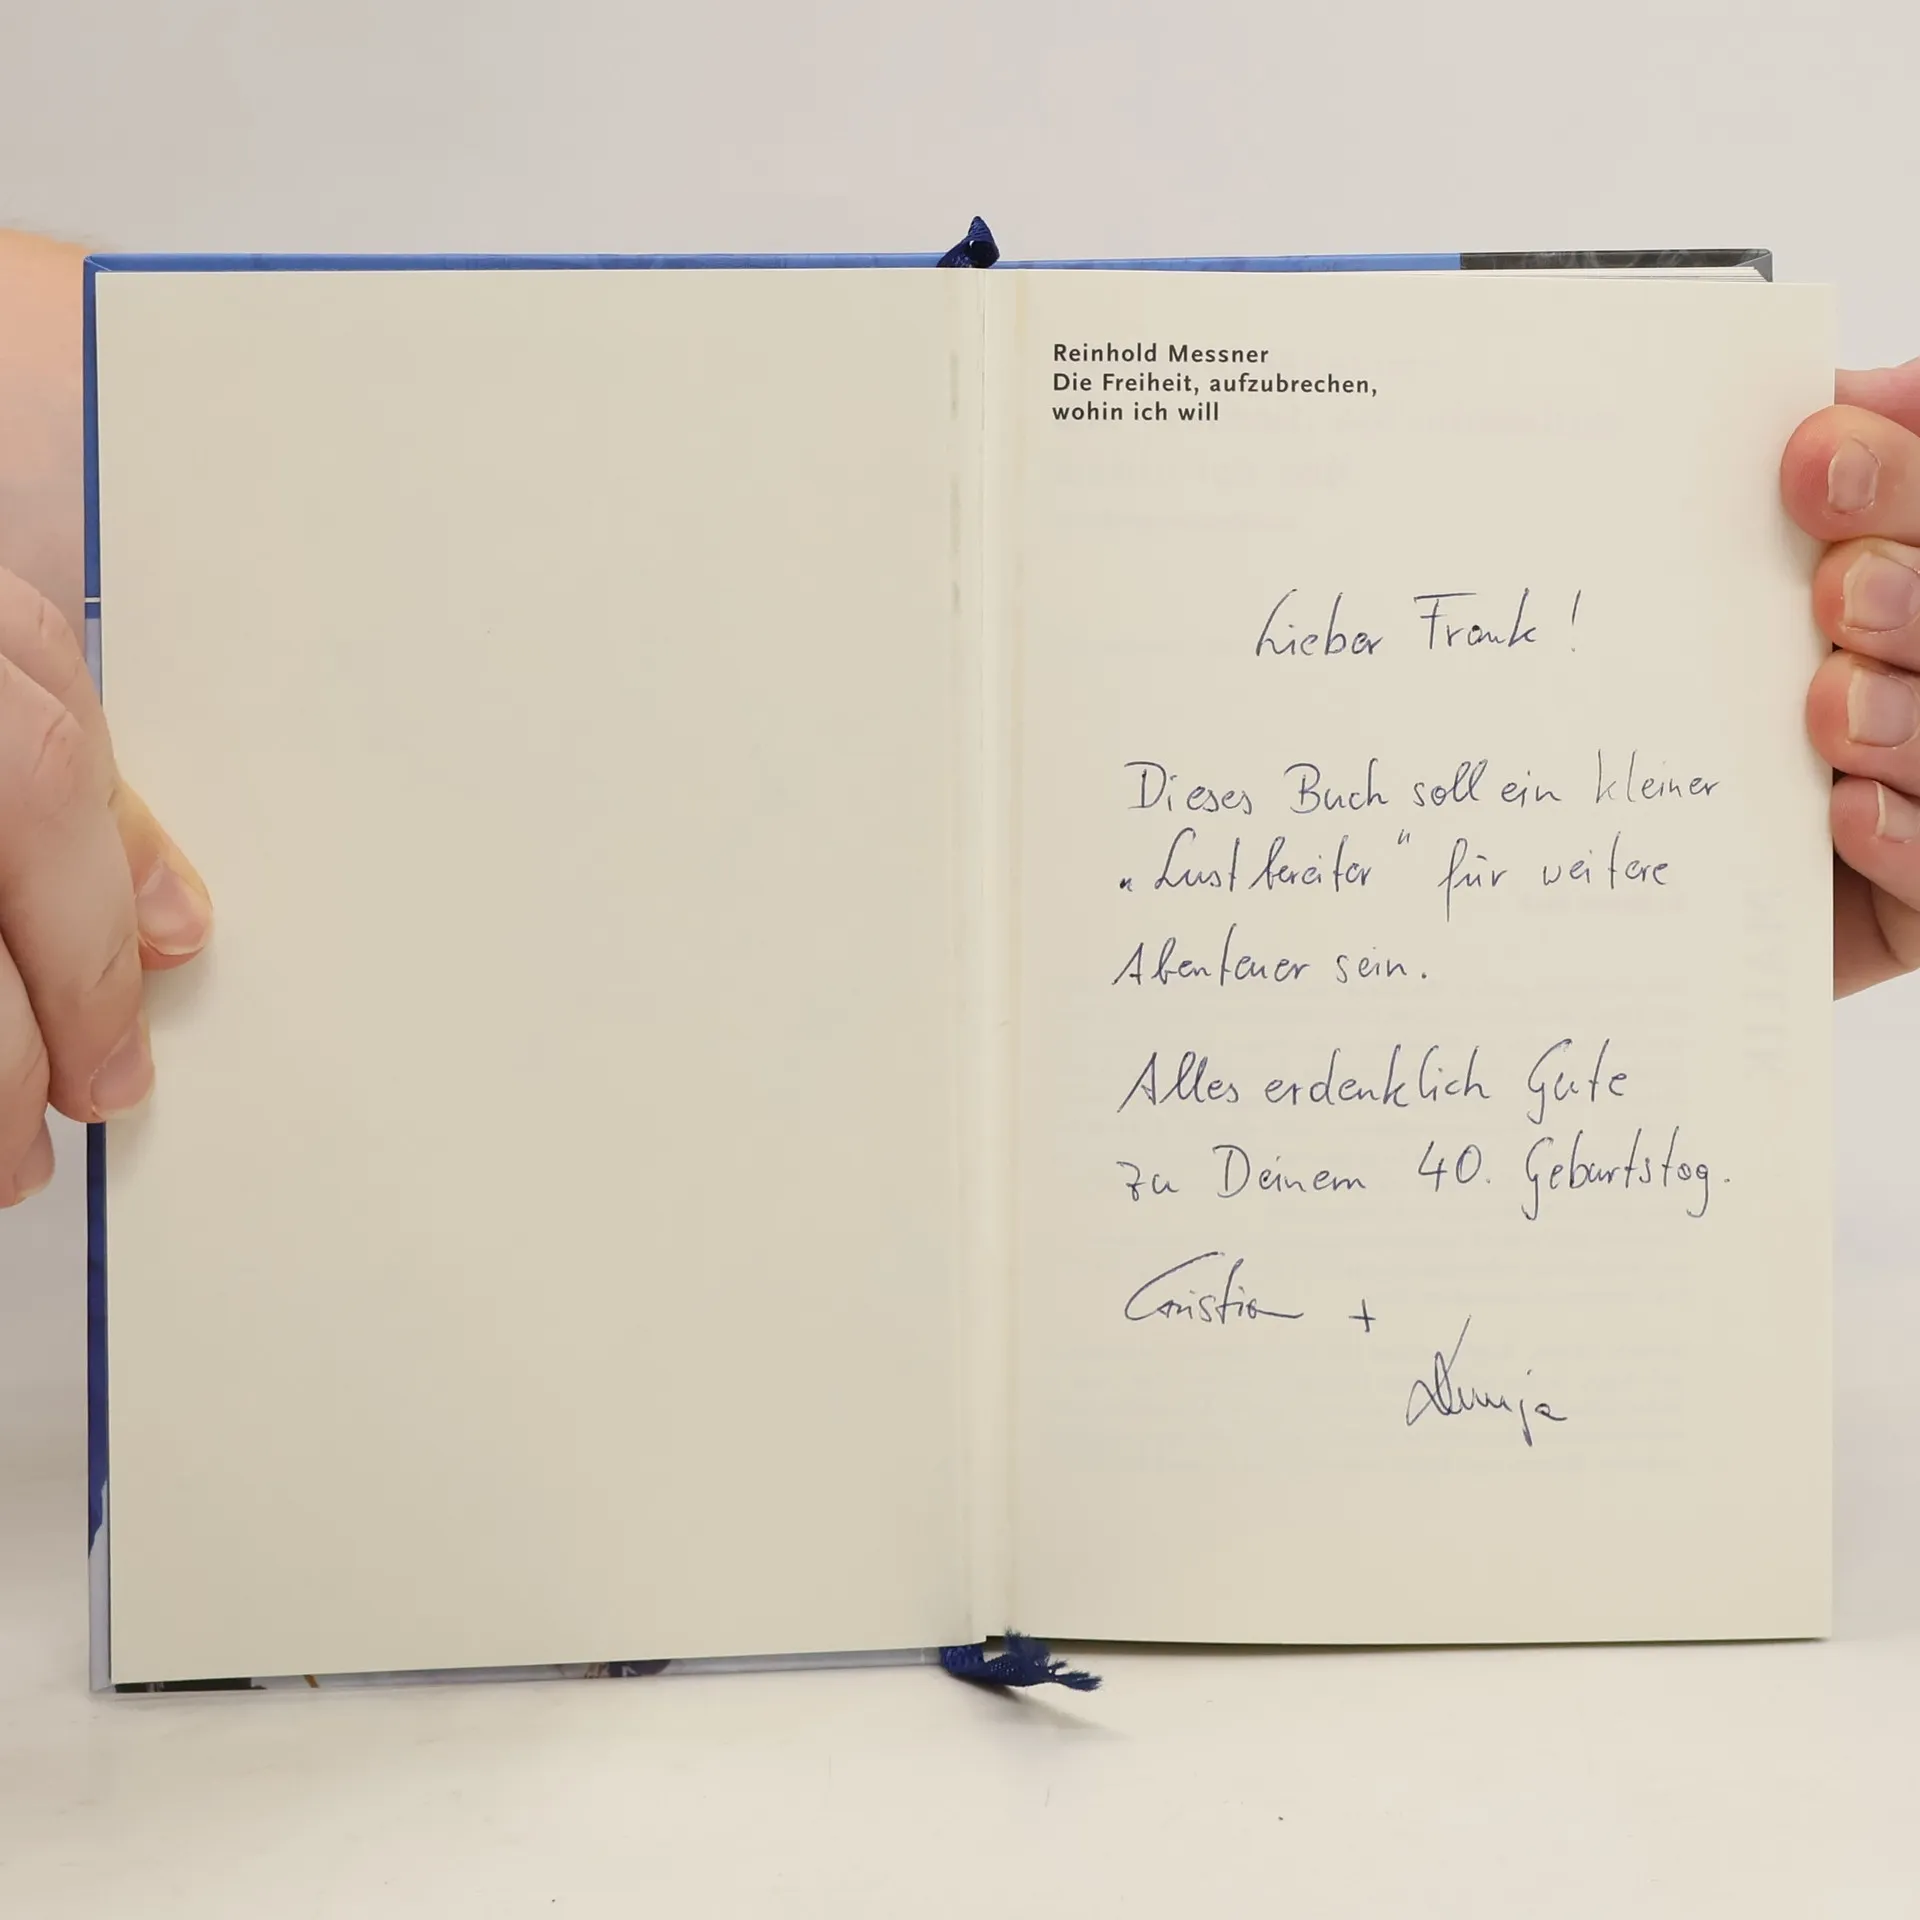 Reinhold Messner
Die Freiheit, aufzubrechen,
wohin ich will
Lieber Frank!
Dieses Buch soll ein kleiner
„Lustbereiter“ für weitere
Abenteuer sein.
Alles erdenklich Gute
zu Deinem 40. Geburtstag.
Cristian +